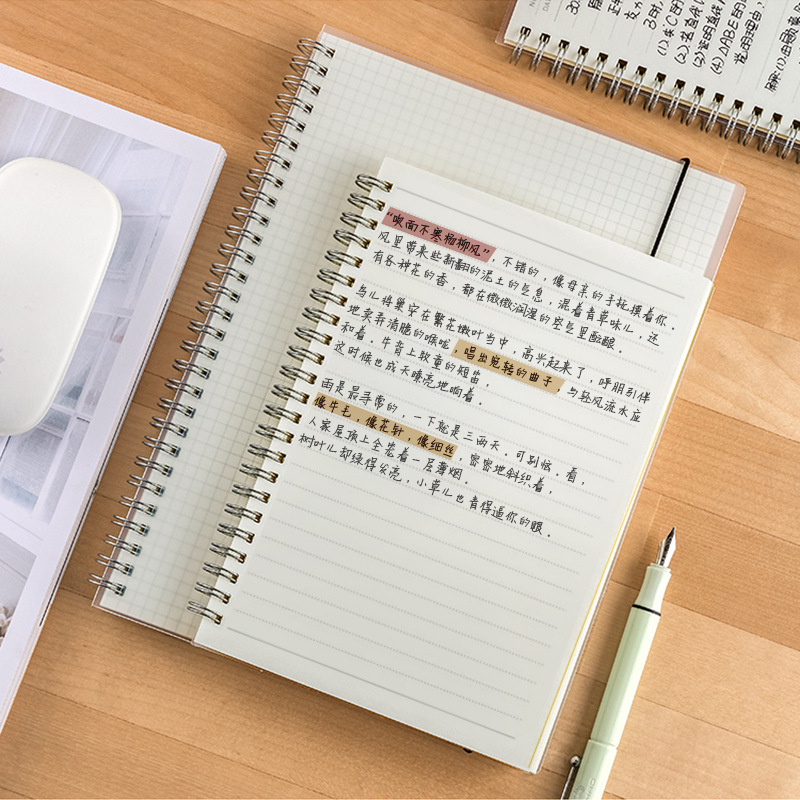 “吹面不寒杨柳风”，不错的，像母亲的手抚摸着你。
风里带来些新翻的泥土的气息，混着青草味儿，还
有各种花的香，都在微微润湿的空气里酝酿。
鸟儿将巢安在繁花嫩叶当中，高兴起来了，呼朋引伴
地卖弄清脆的喉咙，唱出宛转的曲子，与轻风流水应
和着。牛背上牧童的短笛，
这时候也成天嘹亮地响着。
雨是最寻常的，一下就是三两天。可别恼。看，
像牛毛，像花针，像细丝，密密地斜织着，
人家屋顶上全笼着一层薄烟。
树叶儿却绿得发亮，小草儿也青得逼你的眼。
(1) 求C的
(2) 若直线
(4) △ABE的
说明理由，
解:(1)由题意